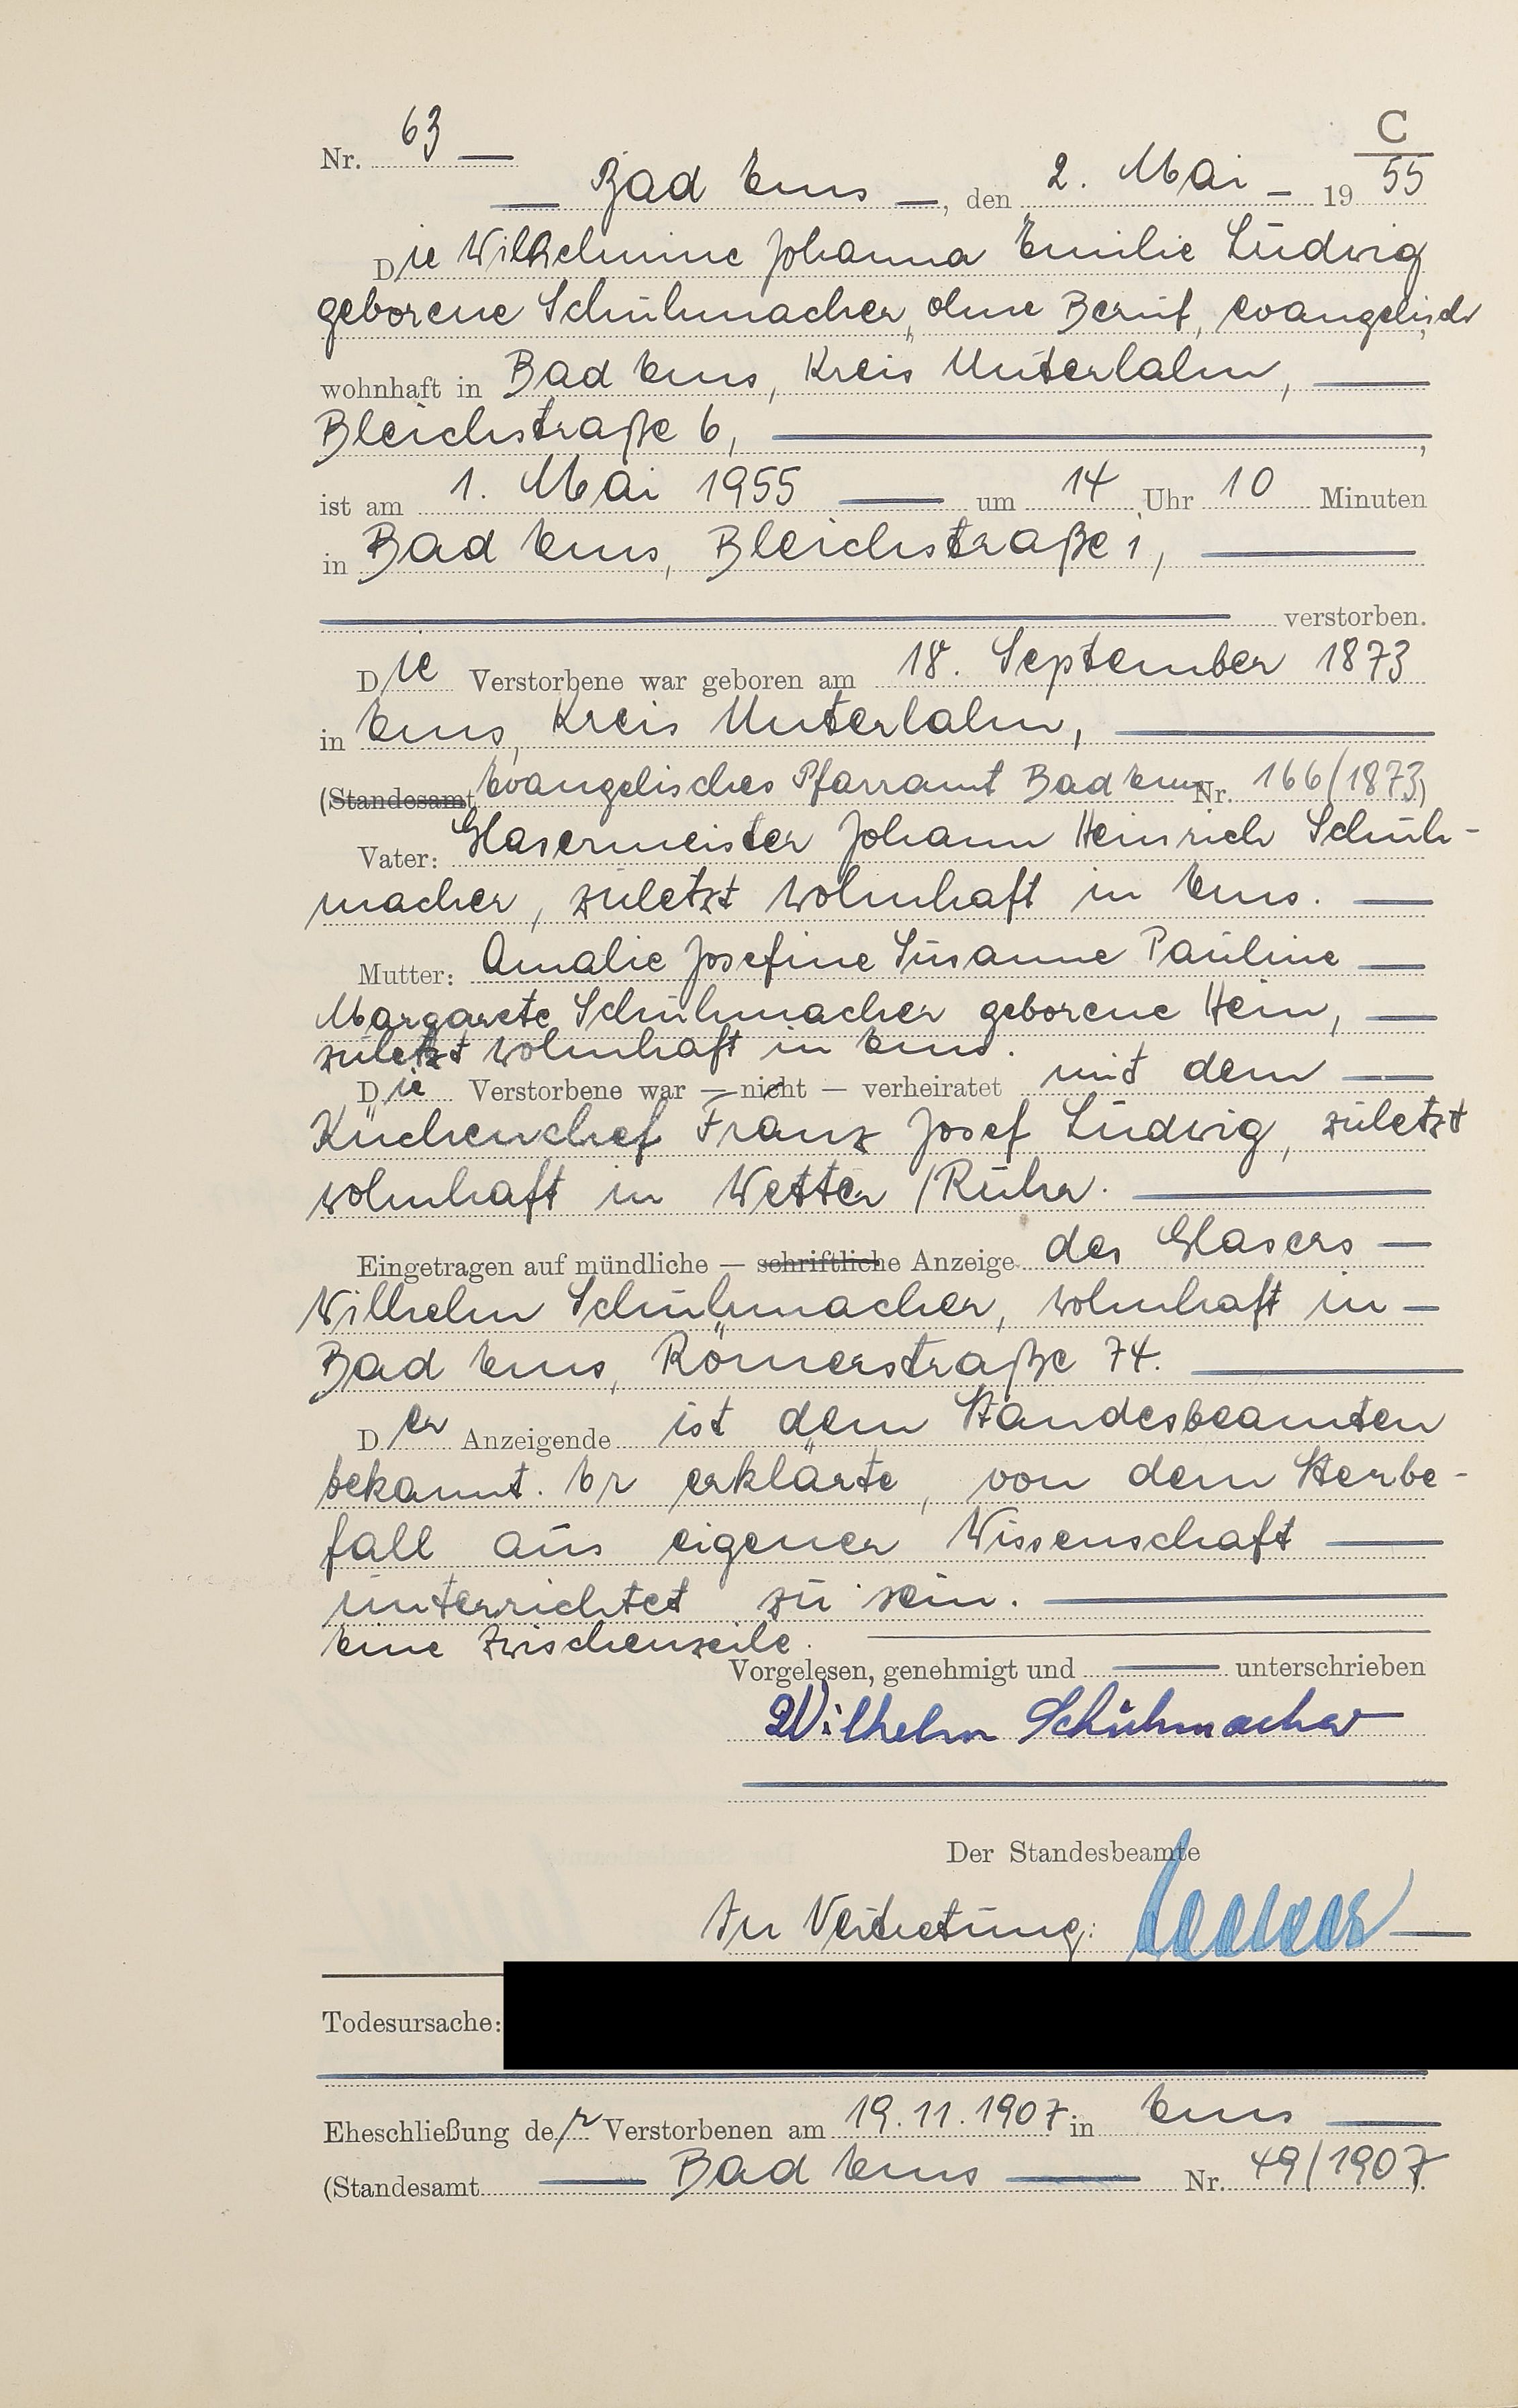 C
Nr. 63 —
— Bad Ems —, den 2. Mai — 19 55
Die Wilhelmine Johanna Emilie Ludwig
geborene Schuhmacher, ohne Beruf, evangelisch
wohnhaft in Bad Ems, Kreis Unterlahn, —
Bleichstraße 6, —,
ist am 1. Mai 1955 — um 14 Uhr 10 Minuten
in Bad Ems, Bleichstraße 1, —
— verstorben.
Die Verstorbene war geboren am 18. September 1873
in Ems, Kreis Unterlahn, —
(Standesamt Evangelisches Pfarramt Bad Ems Nr. 166/1873)
Vater: Glasermeister Johann Heinrich Schuh-
macher, zuletzt wohnhaft in Ems. —
Mutter: Amalie Josefine Susanne Pauline —
Margarete Schuhmacher geborene Hein, —
zuletzt wohnhaft in Ems.
Die Verstorbene war — nicht — verheiratet mit dem —
Küchenchef Franz Josef Ludwig, zuletzt
wohnhaft in Wetter /Ruhr. —
Eingetragen auf mündliche — schriftliche Anzeige des Glasers —
Wilhelm Schuhmacher, wohnhaft in —
Bad Ems, Römerstraße 74. —
Der Anzeigende ist dem Standesbeamten
bekannt. Er erklärte, von dem Sterbe-
fall aus eigener Wissenschaft —
unterrichtet zu sein. —
Eine Zwischenzeile. —
Vorgelesen, genehmigt und — unterschrieben
Wilhelm Schuhmacher
Der Standesbeamte
In Vertretung:
Todesursache:
Eheschließung der Verstorbenen am 19.11.1907 in Ems —
(Standesamt — Bad Ems — Nr. 49/1907).